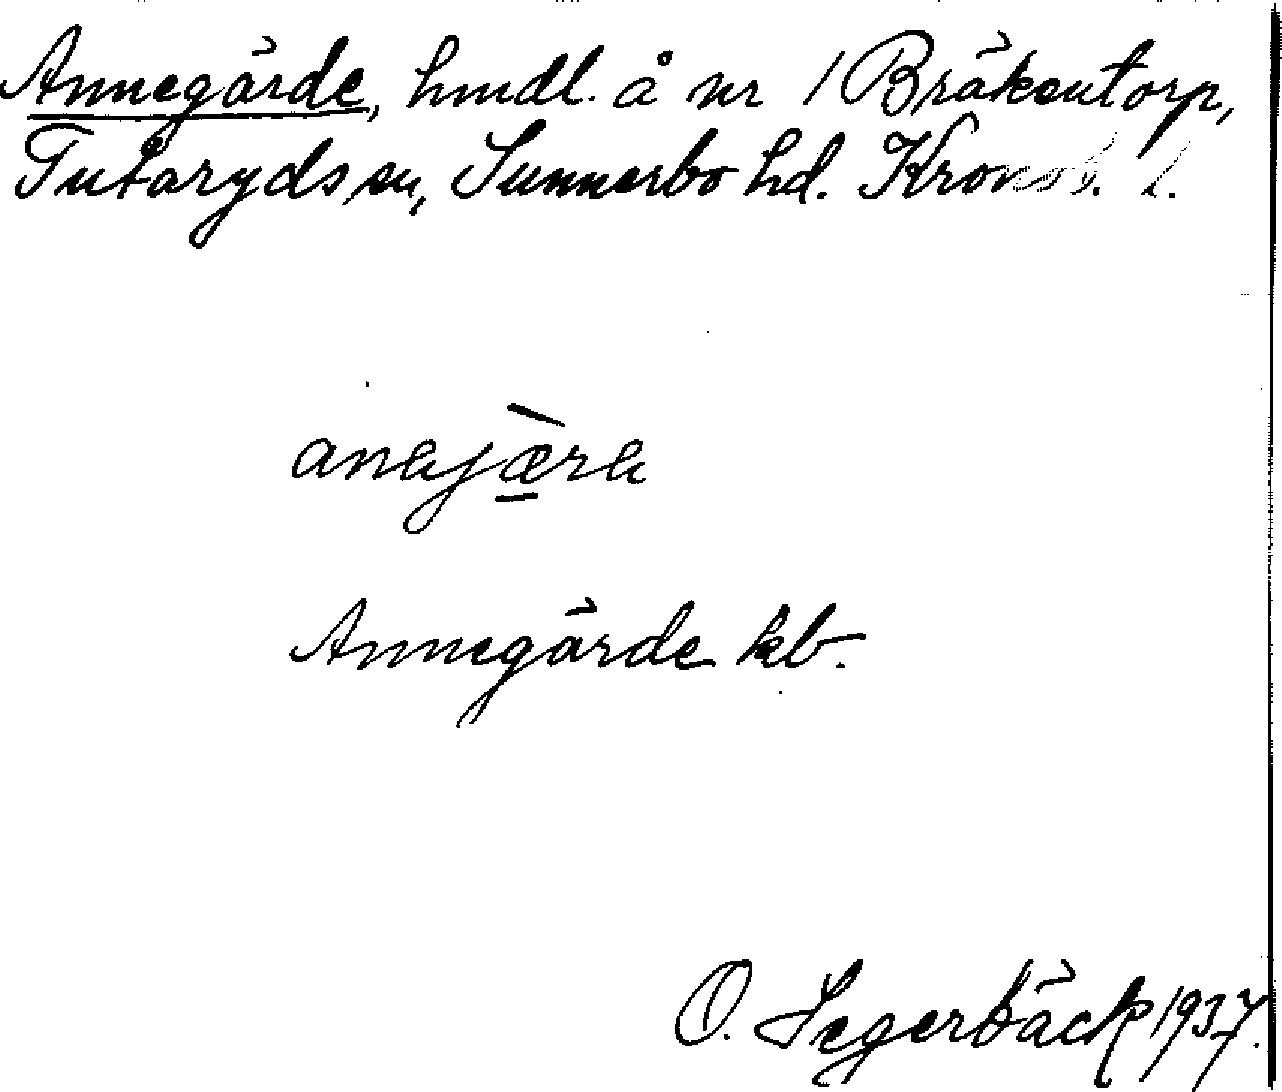 Annegärde, hmdl. å nr 1 Bräkentorp,
Tutaryds sn, Sunnerbo hd. Kronob. l.
anɐjæ̠̀rɐ
Annegärde kb.
O. Segerbäck 1937.